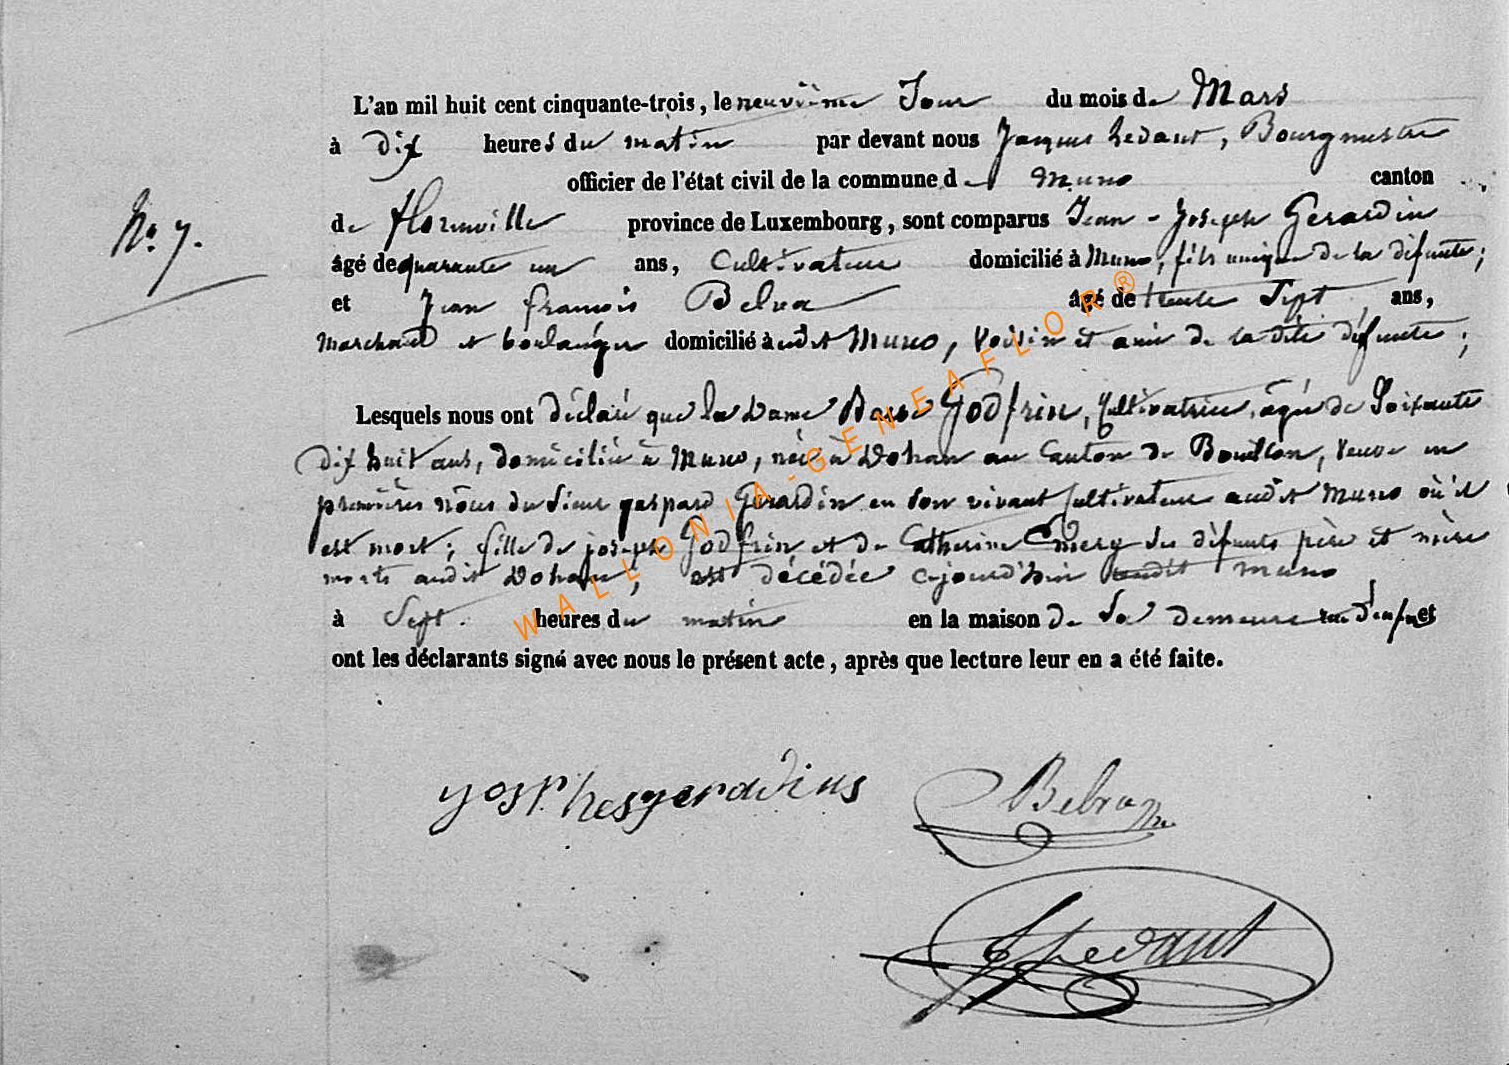 L'an mil huit cent cinquante-trois, le neuvième Jour du mois de Mars
à Dix heures du matin par devant nous Jacques hedant, Bourgmestre
officier de l'état civil de la commune de Muno canton
de florenville province de Luxembourg, sont comparus Jean-Joseph Gerardin
N° 7.
âgé de quarante un ans, Cultivateur domicilié à Muno, fils unique de la défunte;
et Jean françois âgé de trente Sept ans,
Marchand et boulanger domicilié audit Muno, Voisin et ami de la dite défunte;
Lesquels nous ont déclaré que la Dame Godfrin, Cultivatrice, âgée de Soixante
Dix huit ans, domiciliée à Muno, née à Dohan au Canton de Bouillon, veuve en
premières nôces du Sieur gaspard Gerardin en son vivant Cultivateur audit Muno où il
est mort; fille de joseph Godfrin et de Catherine Emery ses défunts père et mère
morts audit Dohan; est décédée ajourd'huit audit muno
à Sept heures du matin en la maison de Sa demeure et
ont les déclarants signé avec nous le présent acte, après que lecture leur en a été faite.
WALLONIA-GENEAFLOR®
hedant